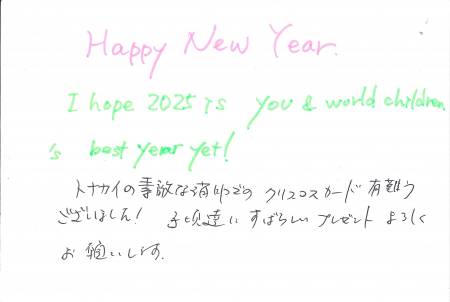 Happy New Year.
I hope 2025 is you & world children
's best year yet!
トナカイの素敵な消印でのクリスマスカード有難う
ございました! 子供達にすばらしいプレゼントよろしく
お願いします.